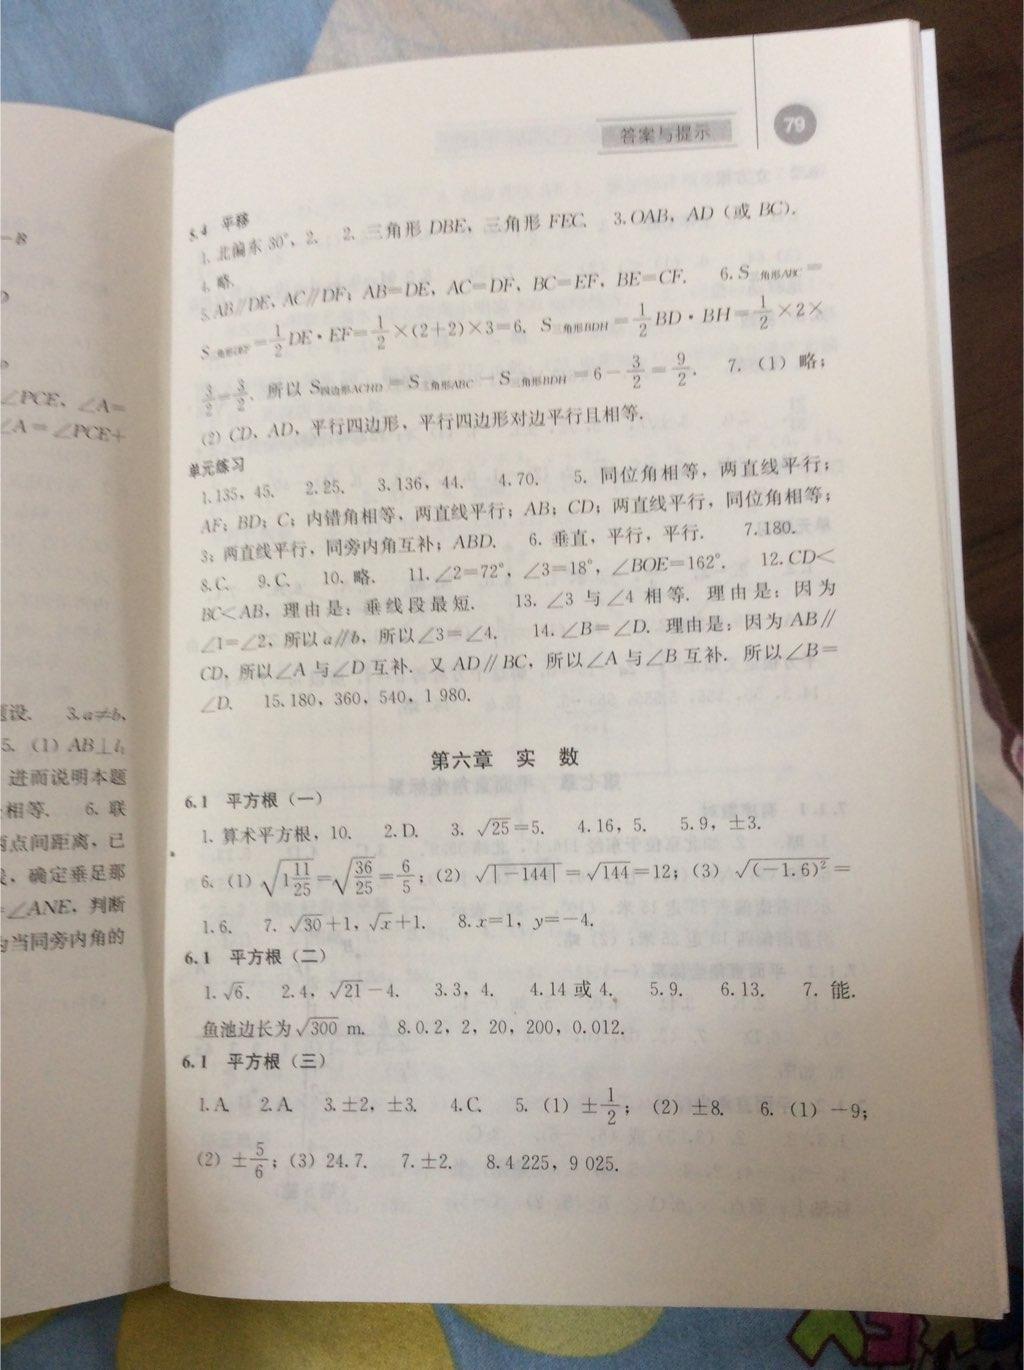 答案与提示 79
5.4 平移
1. 北偏东 30°, 2. 2. 三角形 DBE, 三角形 FEC. 3. OAB, AD (或 BC).
4. 略.
5. AB∥DE, AC∥DF; AB=DE, AC=DF, BC=EF, BE=CF. 6. S三角形ABC=
S三角形DEF=1/2 DE·EF=1/2×(2+2)×3=6. S三角形BDH=1/2 BD·BH=1/2×2×
3/2=3/2. 所以 S四边形ACHD=S三角形ABC−S三角形BDH=6−3/2=9/2. 7. (1) 略;
(2) CD, AD, 平行四边形, 平行四边形对边平行且相等.
单元练习
1. 135, 45. 2. 25. 3. 136, 44. 4. 70. 5. 同位角相等, 两直线平行;
AF; BD; C; 内错角相等, 两直线平行; AB; CD; 两直线平行, 同位角相等;
3; 两直线平行, 同旁内角互补; ABD. 6. 垂直, 平行, 平行. 7. 180.
8. C. 9. C. 10. 略. 11. ∠2=72°, ∠3=18°, ∠BOE=162°. 12. CD<
BC<AB, 理由是: 垂线段最短. 13. ∠3 与∠4 相等. 理由是: 因为
∠1=∠2, 所以 a∥b, 所以∠3=∠4. 14. ∠B=∠D. 理由是: 因为 AB∥
CD, 所以∠A 与∠D 互补. 又 AD∥BC, 所以∠A 与∠B 互补. 所以∠B=
∠D. 15. 180, 360, 540, 1 980.
第六章 实 数
6.1 平方根(一)
1. 算术平方根, 10. 2. D. 3. √25=5. 4. 16, 5. 5. 9, ±3.
6. (1) √(1 11/25)=√(36/25)=6/5; (2) √|−144|=√144=12; (3) √(−1.6)²=
1.6. 7. √30+1, √x+1. 8. x=1, y=−4.
6.1 平方根(二)
1. √6. 2. 4, √21−4. 3. 3, 4. 4. 14 或 4. 5. 9. 6. 13. 7. 能.
鱼池边长为√300 m. 8. 0.2, 2, 20, 200, 0.012.
6.1 平方根(三)
1. A. 2. A. 3. ±2, ±3. 4. C. 5. (1) ±1/2; (2) ±8. 6. (1) −9;
(2) ±5/6; (3) 24.7. 7. ±2. 8. 4 225, 9 025.
∠PCE, ∠A=
∠A=∠PCE+
题设. 3. a≠b,
5. (1) AB⊥l₁
进而说明本题
相等. 6. 联
两点间距离, 已
, 确定垂足那
=∠ANE, 判断
为当同旁内角的